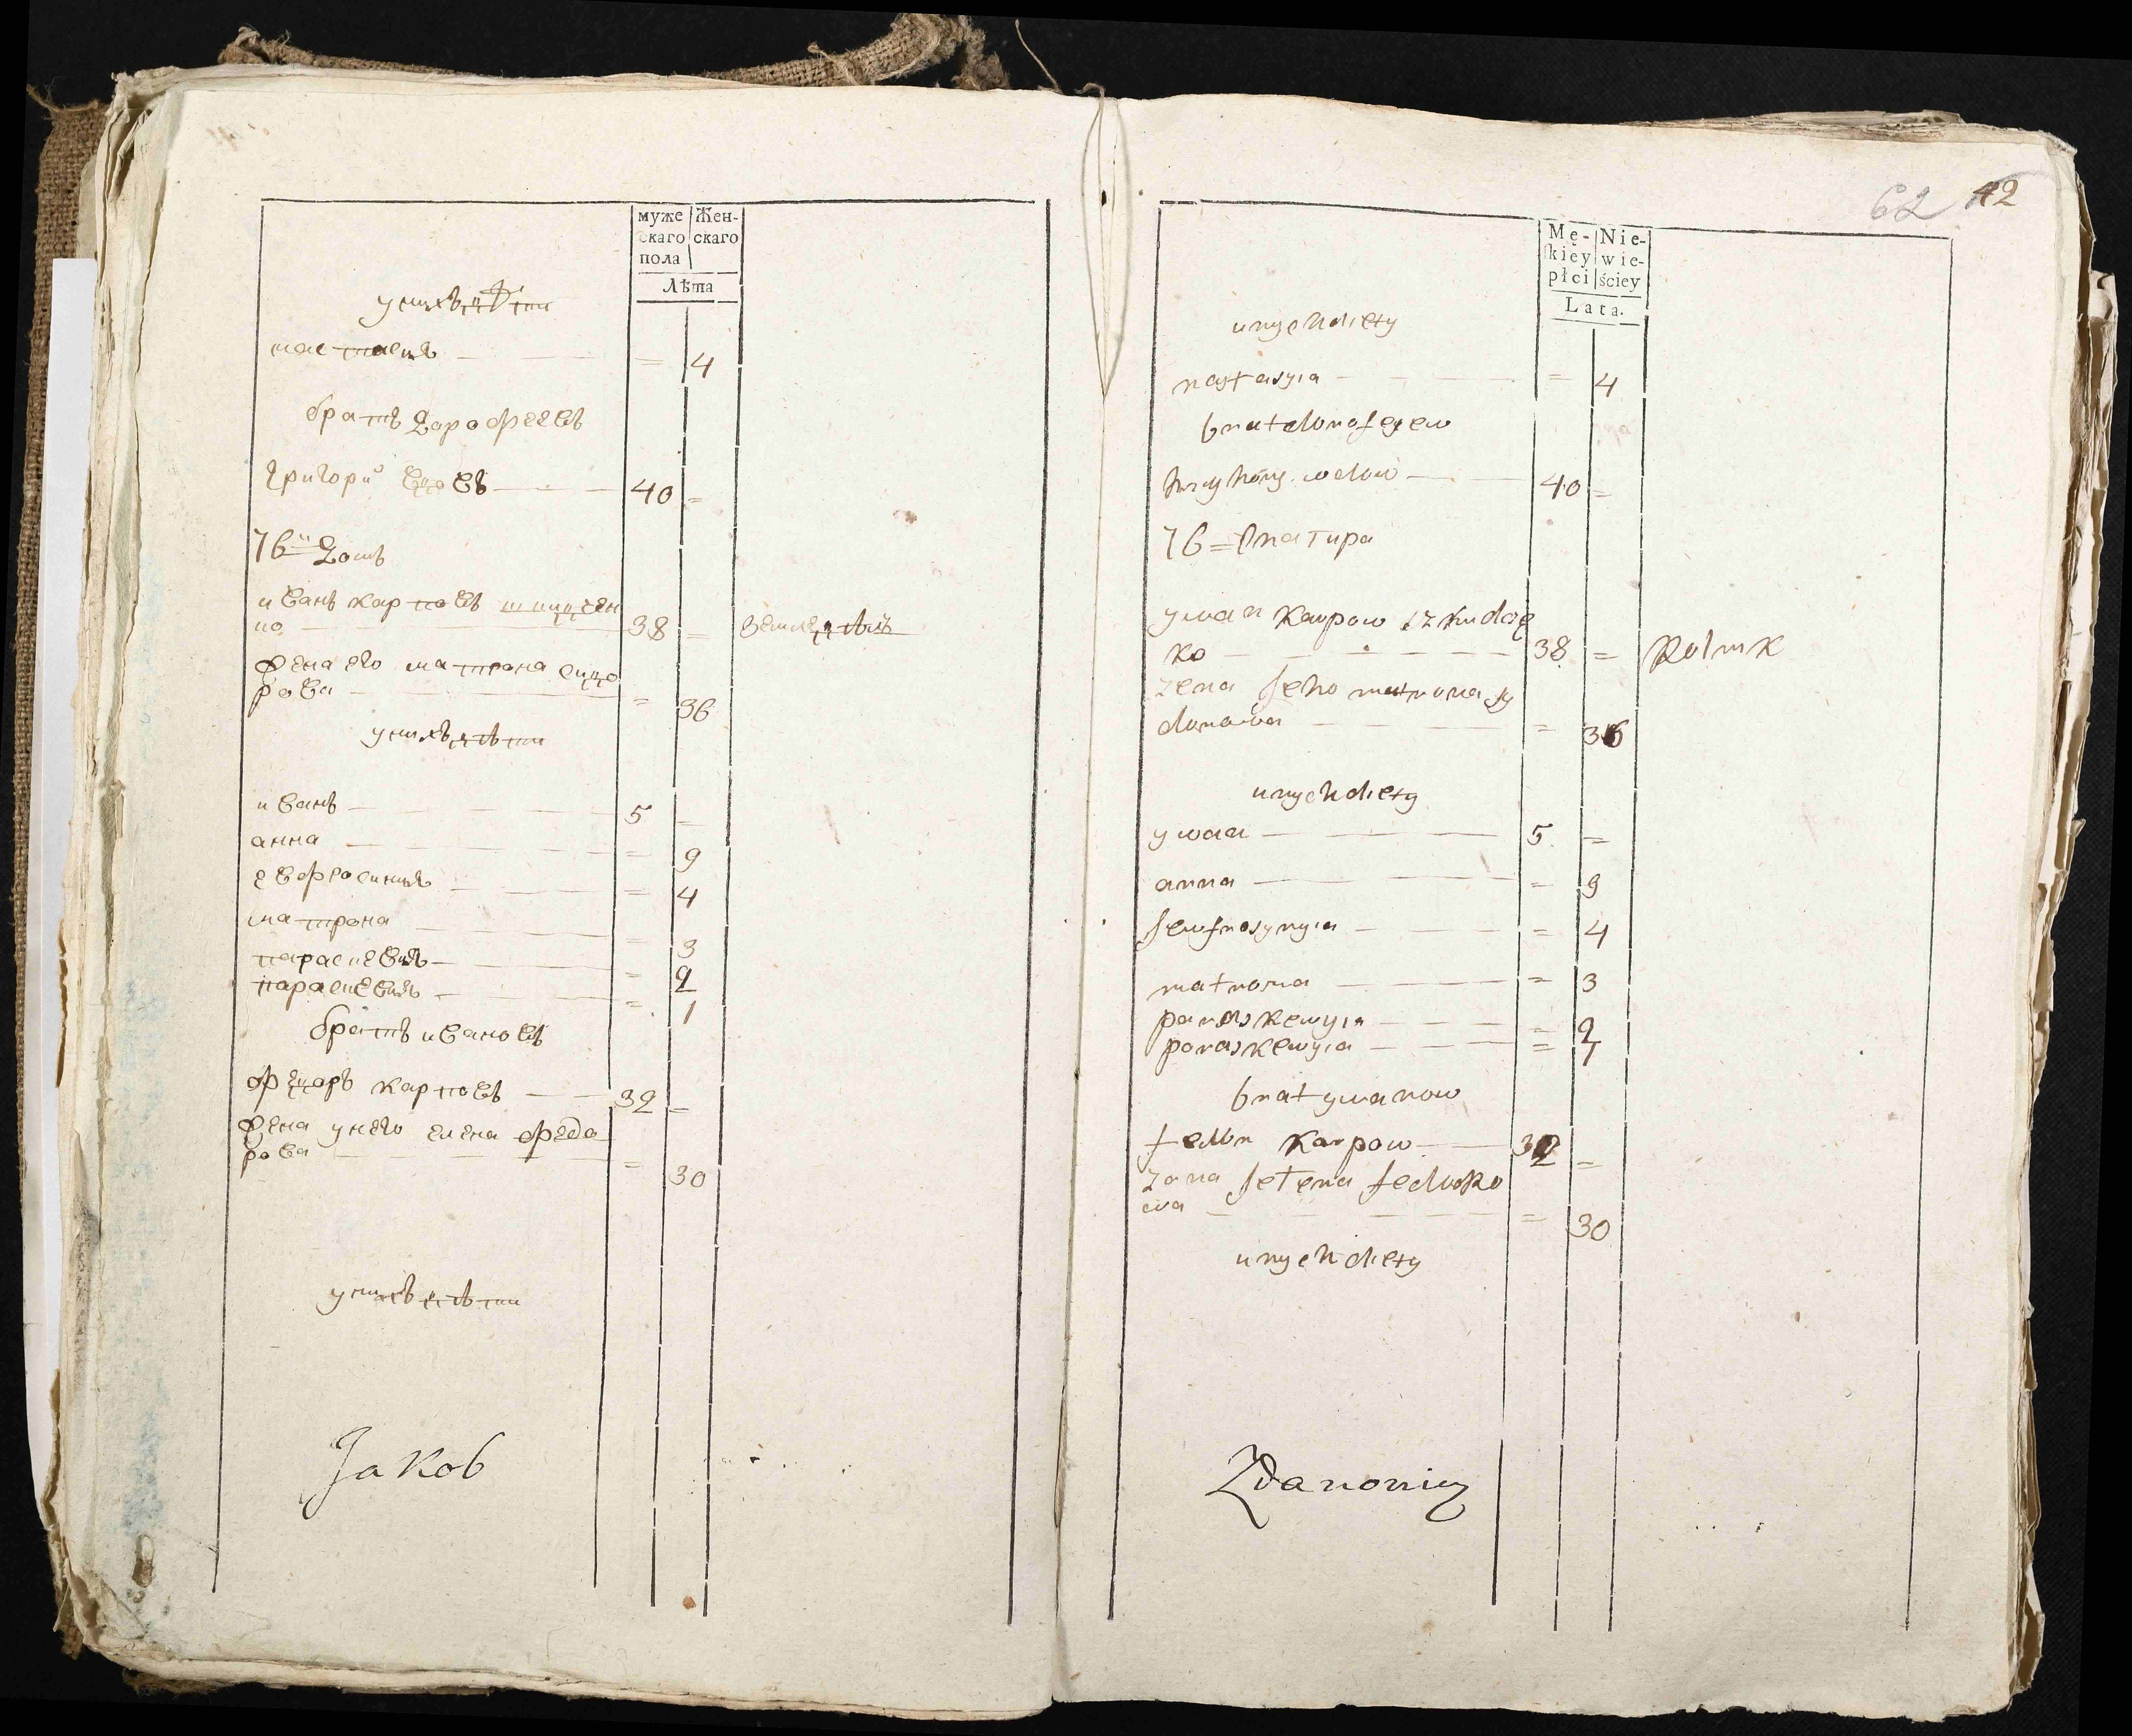 муже Жен-
скаго скаго
пола
Лѣта
унихъ дѣти
настасия = 4
братъ Дорофеевъ
григорий 40 =
76й Домъ
иванъ карповъ
но 38 = земледѣлъ
жена его матрона сидо
рова = 36
унихъ дѣти
иванъ 5 =
анна = 9
евфросиния = 4
матрона = 3
параскевия = 2
параскевия = 1
братъ ивановъ
федоръ карповъ 32 =
жена унего елена федо
рова = 30
унихъ дѣти
Jakob
62 42
Mę- Nie-
skiey wie-
płci ściey
Lata.
unych diety
nastasyia = 4
brat dorofeyew
hryhory 40 =
76 = chatupa
ywan karpow
ko 38 = Rolnik
zena jeho matrona sy
dorowa = 36
unych diety
ywan 5 =
anna = 9
jewfrosynyia = 4
matrona = 3
paraskewyia = 2
paraskewyia = 1
brat ywanow
fedor karpow 32 =
zona jelena fedoro
wa = 30
unych diety
Zdanowicz